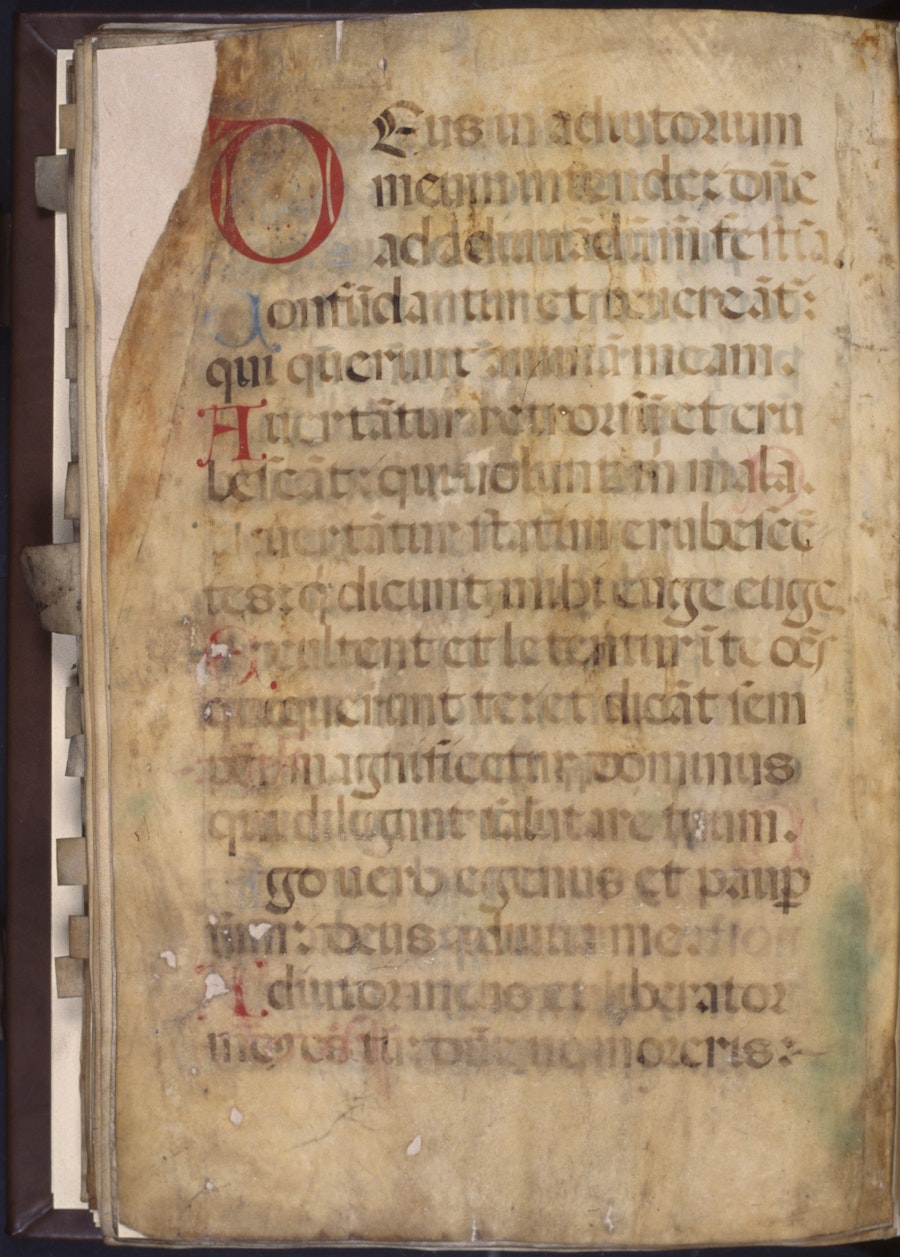 DEus in adiutorium
meum intende: dn̄e
ad adiuuādū m̄ festīa.
Confūdantur et reuereāt᷑:
qui querunt animā meam.
Auertātur retrorsū et eru
bescāt᷑: qui uolunt m mala.
Auertātur statim erubescē
tes: q̄ dicunt mihi euge euge
Exultent et letentur ī te oēs
qui querunt te: et dicāt sem
per magnificetur dominus
qui diligunt salutare tuum.
Ego uero egenus et paup̄
sum: deus adiuua me.
Adiutor meus et liberator
meꝰ es tu: dn̄e ne moreris: